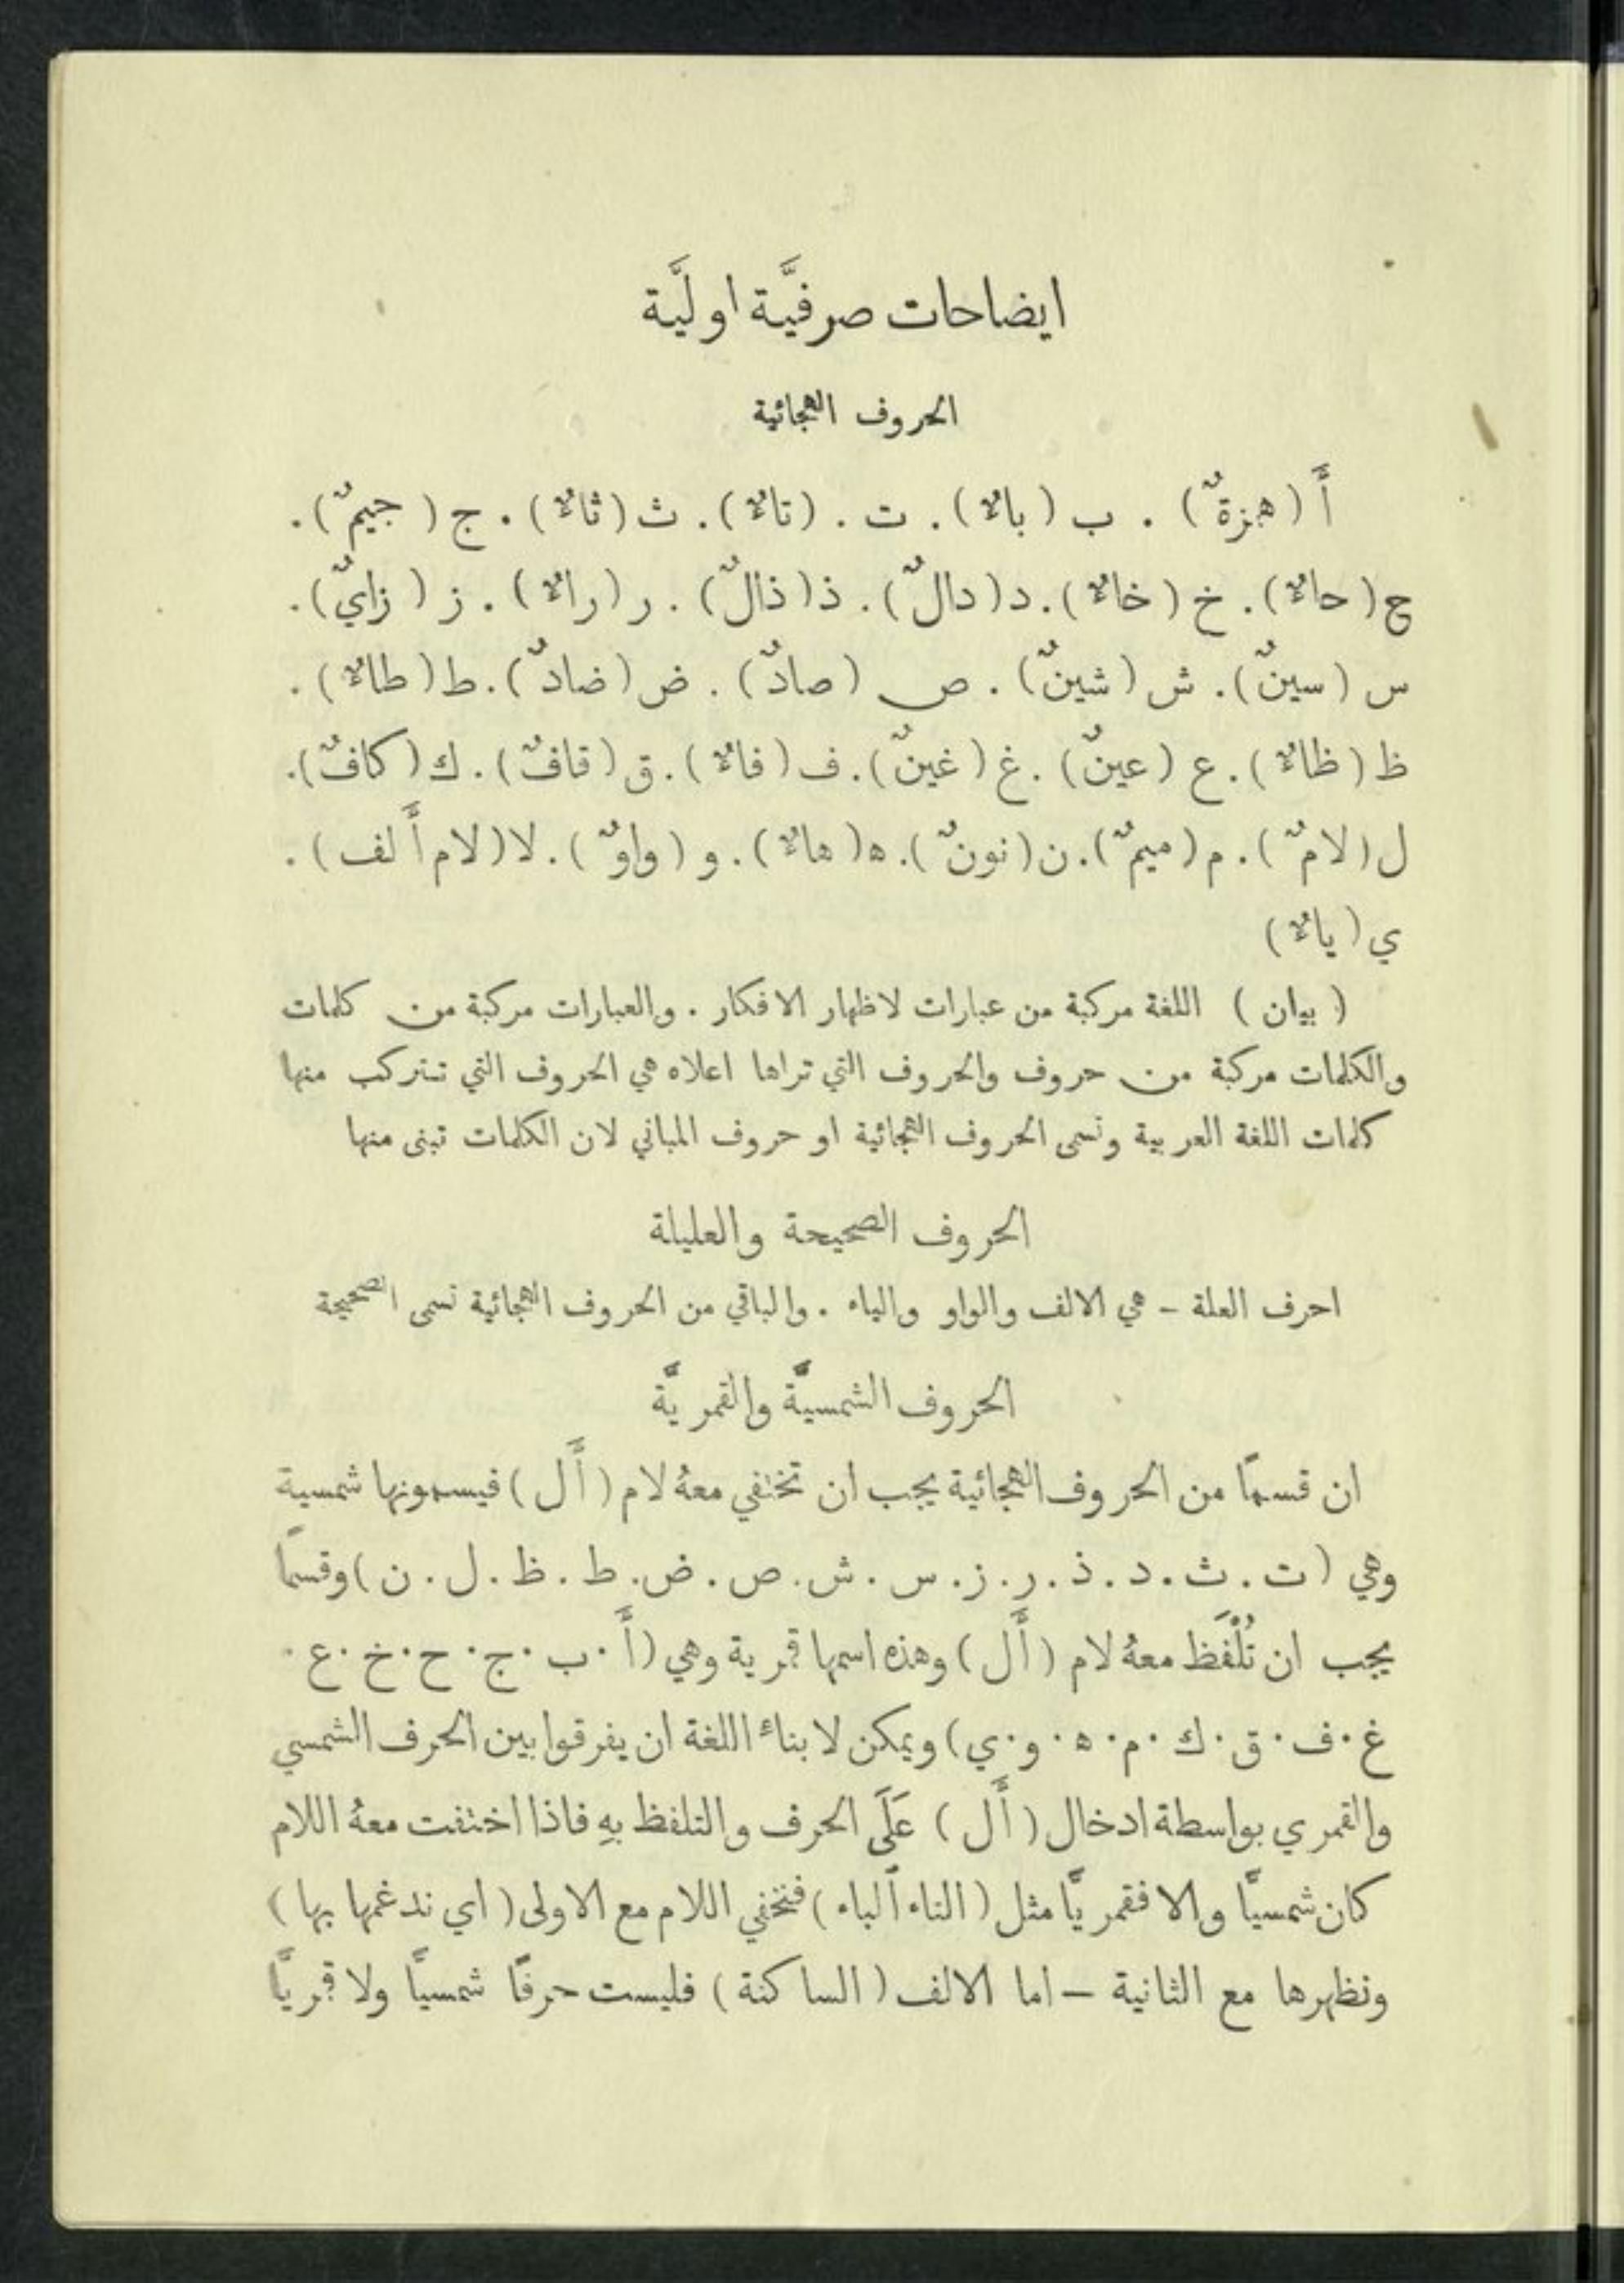 ايضاحات صرفيَّة اولَيَّة
الحروف الهجائية
أَ (همزةٌ) . ب (باءٌ) . ت . (تاءٌ) . ث (ثاءٌ) . ج (جيمٌ) .
ح (حاءٌ) . خ (خاءٌ) . د (دالٌ) . ذ (ذالٌ) . ر (راءٌ) . ز (زايٌ) .
س (سينٌ) . ش (شينٌ) . ص (صادٌ) . ض (ضادٌ) . ط (طاءٌ) .
ظ (ظاءٌ) . ع (عينٌ) . غ (غينٌ) . ف (فاءٌ) . ق (قافٌ) . ك (كافٌ) .
ل (لامٌ) . م (ميمٌ) . ن (نونٌ) . ه (هاءٌ) . و (واوٌ) . لا (لام أَلف) .
ي (ياءٌ)
( بيان ) اللغة مركبة من عبارات لاظهار الافكار . والعبارات مركبة من كلمات
والكلمات مركبة من حروف والحروف التي تراها اعلاه هي الحروف التي تتركب منها
كلمات اللغة العربية وتسمى الحروف الهجائية او حروف المباني لان الكلمات تبنى منها
الحروف الصحيحة والعليلة
احرف العلة – هي الالف والواو والياء . والباقي من الحروف الهجائية تسمى الصحيحة
الحروف الشمسيَّة والقمريَّة
ان قسماً من الحروف الهجائية يجب ان تختفي معهُ لام (أَل) فيسمونها شمسية
وهي (ت . ث . د . ذ . ر . ز . س . ش . ص . ض . ط . ظ . ل . ن) وقسماً
يجب ان تُلْفَظ معهُ لام (أَل) وهذه اسمها قمرية وهي (أَ . ب . ج . ح . خ . ع .
غ . ف . ق . ك . م . ه . و . ي) ويمكن لابناء اللغة ان يفرقوا بين الحرف الشمسي
والقمري بواسطة ادخال (أَل) عَلَى الحرف والتلفظ بهِ فاذا اختفت معهُ اللام
كان شمسيًّا والا فقمريًّا مثل (التاء الباء) فتختفي اللام مع الاولى (اي ندغمها بها)
ونظهرها مع الثانية – اما الالف (الساكنة) فليست حرفًا شمسيًّا ولا قمريًّا